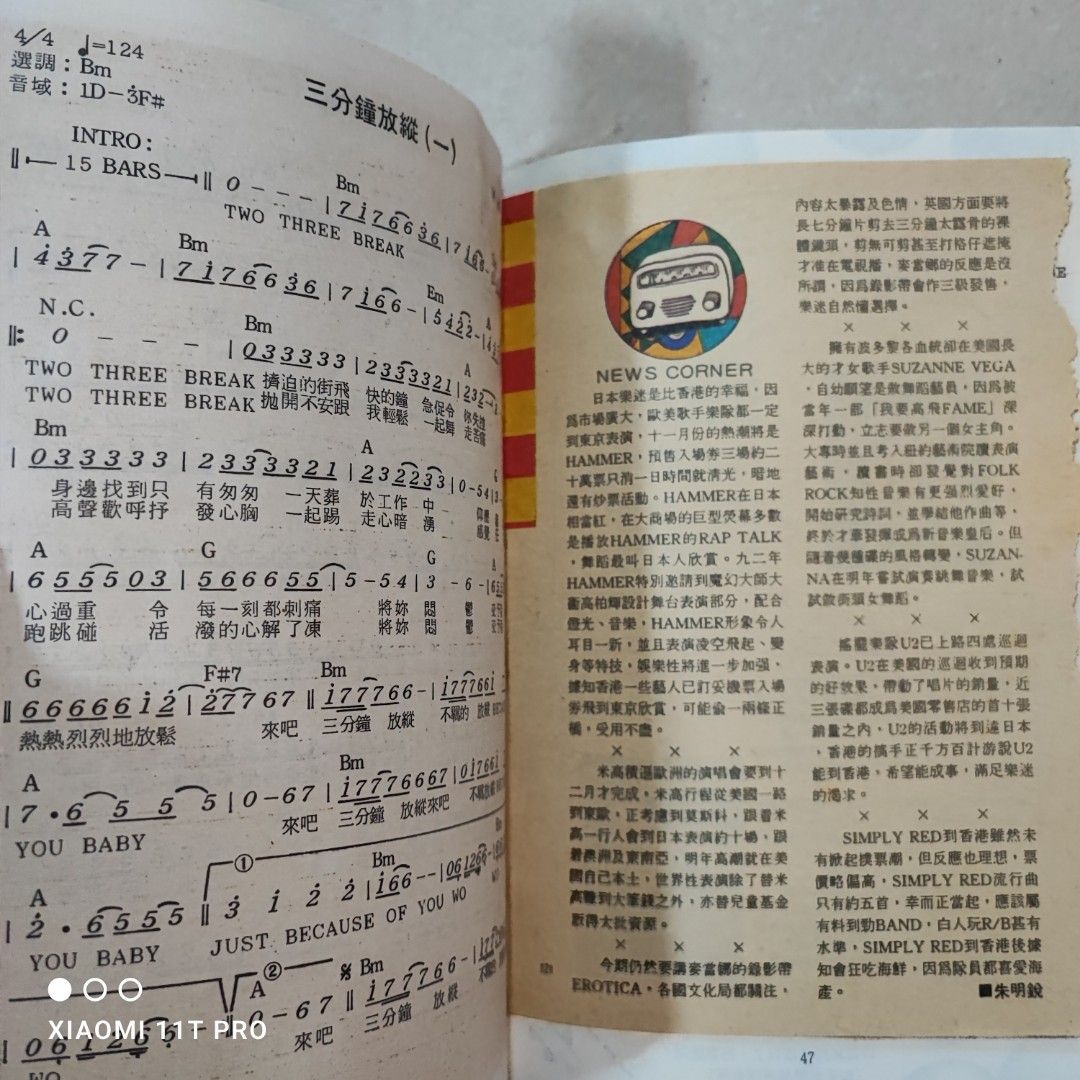 4/4 ♩=124
選調：Bm
音域：1D-3F#
三分鐘放縱(一)
INTRO：
15 BARS
0 - - - | 7 1 7 6 6 3 6 | 7 1 6 6 -
Bm
TWO THREE BREAK
A Bm Em A
| 4 3 7 7 - | 7 1 7 6 6 3 6 | 7 1 6 6 - | 5 4 2 2 -
N.C. Bm A
0 - - - | 0 3 3 3 3 3 | 2 3 3 3 3 2 1 | 2 3 2
TWO THREE BREAK 擠迫的街飛 快的鐘 急促令 你失
TWO THREE BREAK 拋開不安跟 我輕鬆 一起舞 走苦痛
Bm A G
| 0 3 3 3 3 3 3 | 2 3 3 3 3 2 1 | 2 3 2 2 3 3 | 0 - 5 4 | 3 -
身邊找到只 有匆匆 一天葬 於工作 中
高聲歡呼抒 發心胸 一起踢 走心暗 湧 感覺
A G G A
| 6 5 5 5 5 0 3 | 5 6 6 6 5 5 | 5 - 5 4 | 3 - 6 -
心過重 令 每一刻都刺痛 將妳 悶 鬱
跑跳碰 活 潑的心解了凍 將妳 悶 鬱
G F#7 Bm
6 6 6 6 6 6 1 2 | 2 7 7 7 6 7 || 1 7 7 7 6 6 - | 1 7 7 7 6 6 1
熱熱烈烈地放鬆 來吧 三分鐘 放縱 不羈的 放縱
A Bm
| 7 • 6 5 5 5 | 0 - 6 7 | 1 7 7 7 6 6 6 7 | 0 1 7 6 6 1
YOU BABY 來吧 三分鐘 放縱來吧
A ① Bm
| 2 • 6 5 5 5 || 3 1 2 2 | 1 6 6 - - | 0 6 1 2 6 6
YOU BABY JUST BECAUSE OF YOU WO WO
② A 𝄋 Bm
| 0 6 1 2 6 6 || 0 - 6 7 || 1 7 7 7 6 6 -
WO 來吧 三分鐘 放縱
XIAOMI 11T PRO
NEWS CORNER
日本樂迷是比香港的幸福，因
為市場廣大，歐美歌手樂隊都一定
到東京表演，十一月份的熱潮將是
HAMMER，預售入場券三場約二
十萬票只消一日時間就清光，暗地
還有炒票活動。HAMMER在日本
相當紅，在大商場的巨型熒幕多數
是播放HAMMER的RAP TALK
，舞蹈最叫日本人欣賞。九二年
HAMMER特別邀請到魔幻大師大
衛高柏輝設計舞台表演部分，配合
燈光、音樂，HAMMER形象令人
耳目一新，並且表演凌空飛起、變
身等特技，娛樂性將進一步加強，
據知香港一些藝人已訂妥機票入場
劵飛到東京欣賞，可能偷一兩條正
橋，受用不盡。
× × ×
米高積遜歐洲的演唱會要到十
二月才完成，米高行程從美國一路
到東歐，正考慮到莫斯科，跟着米
高一行人會到日本表演約十場，跟
着澳洲及東南亞，明年高潮就在美
國自己本土，世界性表演除了替米
高賺到大筆錢之外，亦替兒童基金
取得大批資源。
× × ×
今期仍然要講麥當娜的錄影帶
EROTICA，各國文化局都關注，
內容太暴露及色情，英國方面要將
長七分鐘片剪去三分鐘太露骨的裸
體鏡頭，剪無可剪甚至打格仔遮掩
才准在電視播，麥當娜的反應是沒
所謂，因為錄影帶會作三級發售，
樂迷自然懂選擇。
× × ×
擁有波多黎各血統卻在美國長
大的才女歌手SUZANNE VEGA
，自幼願望是做舞蹈藝員，因為被
當年一部「我要高飛FAME」深
深打動，立志要做另一個女主角。
大專時並且考入紐約藝術院讀表演
藝術，讀書時卻發覺對FOLK
ROCK知性音樂有更強烈愛好，
開始研究詩詞，並學結他作曲等，
終於才華發揮成為新音樂皇后。但
隨着幾種碟的風格轉變，SUZAN-
NA在明年嘗試演奏跳舞音樂，試
試做街頭女舞蹈。
× × ×
搖擺樂隊U2已上路四處巡迴
表演。U2在美國的巡迴收到預期
的好效果，帶動了唱片的銷量，近
三張碟都成為美國零售店的首十張
銷量之內，U2的活動將到達日本
，香港的搞手正千方百計游說U2
能到香港，希望能成事，滿足樂迷
的渴求。
× × ×
SIMPLY RED到香港雖然未
有掀起撲票潮，但反應也理想，票
價略偏高，SIMPLY RED流行曲
只有約五首，幸而正當起，應該屬
有料到勁BAND，白人玩R/B甚有
水準，SIMPLY RED到香港後據
知會狂吃海鮮，因為隊員都喜愛海
產。 ■朱明銳
47